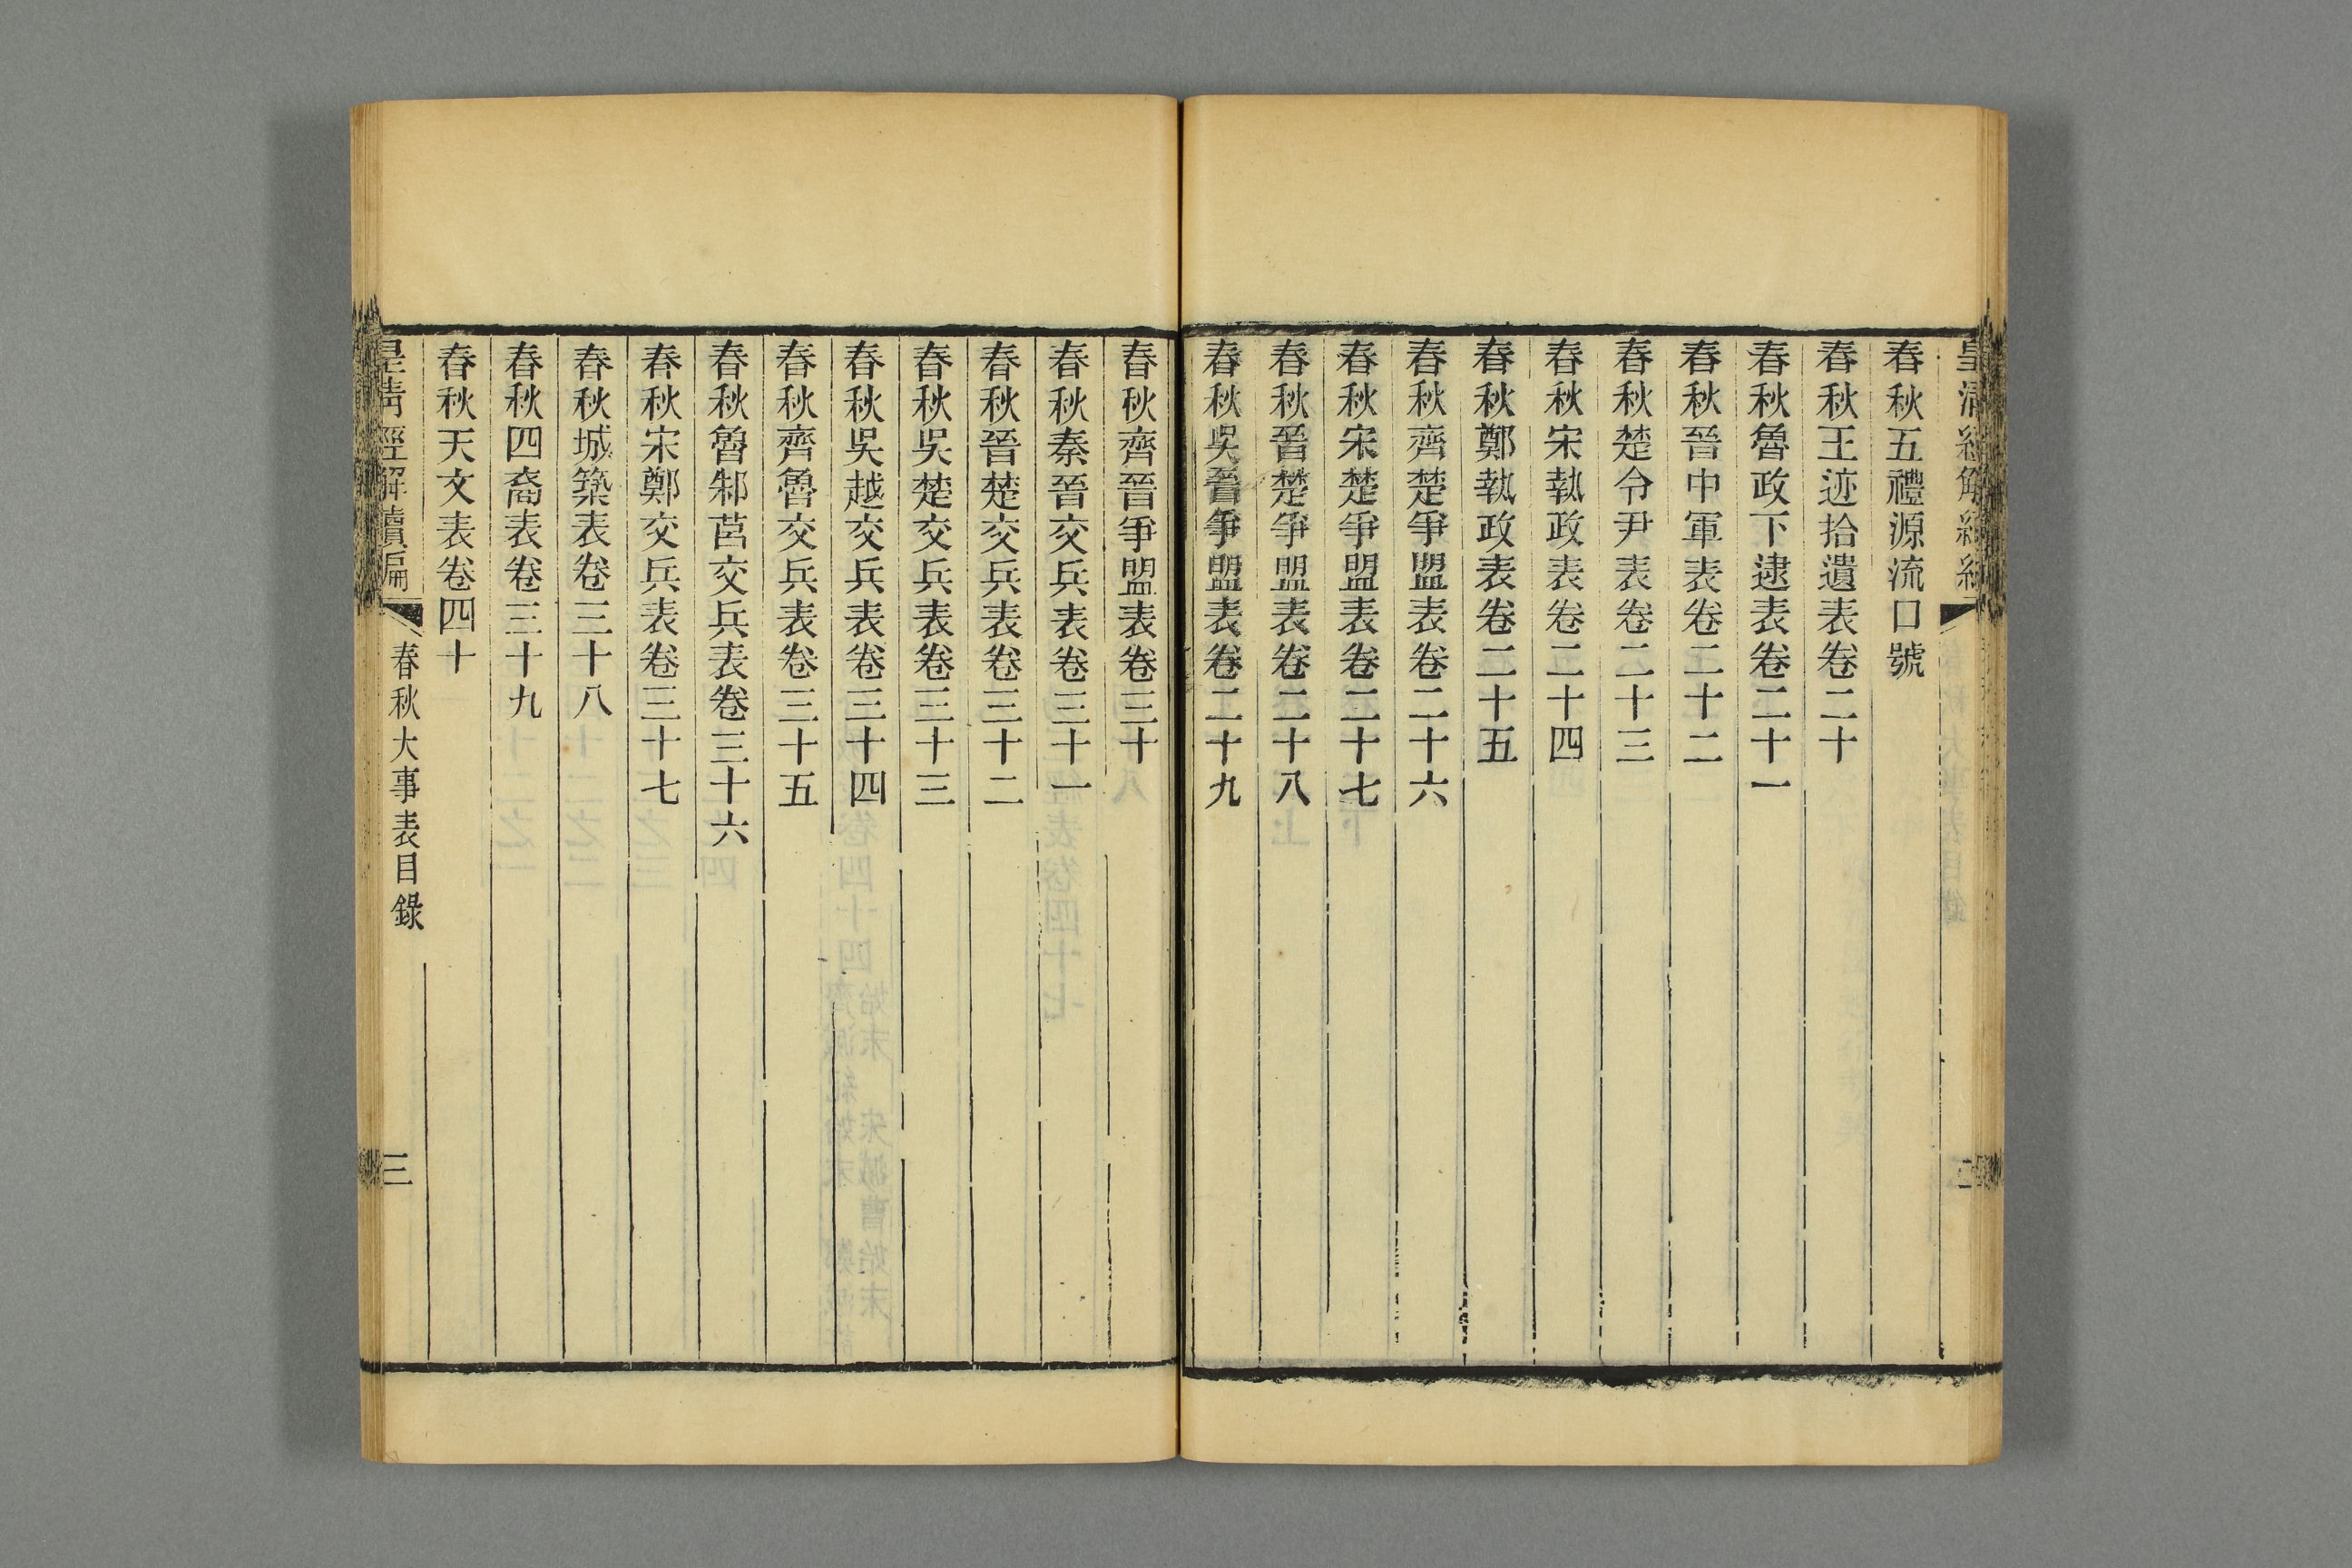 春秋五禮源流口號
春秋王迹拾遺表卷二十
春秋魯政下逮表卷二十一
春秋晉中軍表卷二十二
春秋楚令尹表卷二十三
春秋宋執政表卷二十四
春秋鄭執政表卷二十五
春秋齊楚爭盟表卷二十六
春秋宋楚爭盟表卷二十七
春秋晉楚爭盟表卷二十八
春秋吳晉爭盟表卷二十九
春秋齊晉爭盟表卷三十
春秋秦晉交兵表卷三十一
春秋晉楚交兵表卷三十二
春秋吳楚交兵表卷三十三
春秋吳越交兵表卷三十四
春秋齊魯交兵表卷三十五
春秋魯邾莒交兵表卷三十六
春秋宋鄭交兵表卷三十七
春秋城築表卷三十八
春秋四裔表卷三十九
春秋天文表卷四十
皇清經解續編 春秋大事表目錄 三